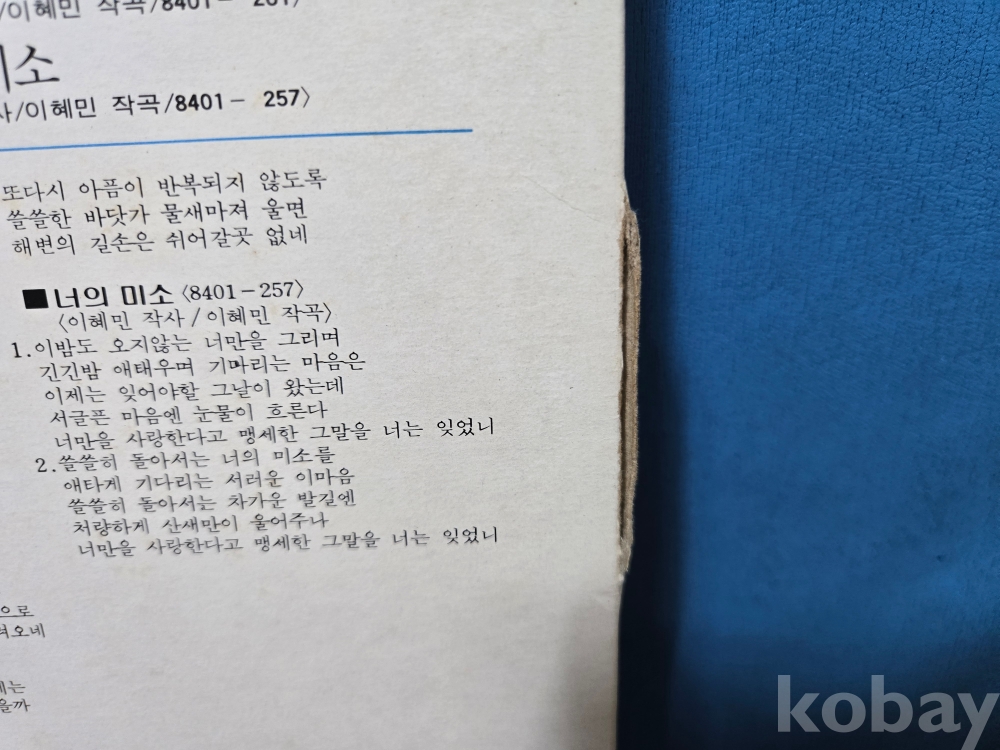 /이혜민 작곡/8401- 261〉
미소
사/이혜민 작곡/8401- 257〉
또다시 아픔이 반복되지 않도록
쓸쓸한 바닷가 물새마져 울면
해변의 길손은 쉬어갈곳 없네
■너의 미소〈8401-257〉
〈이혜민 작사 / 이혜민 작곡〉
1.이밤도 오지않는 너만을 그리며
긴긴밤 애태우며 기다리는 마음은
이제는 잊어야할 그날이 왔는데
서글픈 마음엔 눈물이 흐른다
너만을 사랑한다고 맹세한 그말을 너는 잊었니
2.쓸쓸히 돌아서는 너의 미소를
애타게 기다리는 서러운 이마음
쓸쓸히 돌아서는 차가운 발길엔
처량하게 산새만이 울어주나
너만을 사랑한다고 맹세한 그말을 너는 잊었니
으로
오네
는
을까
kobay